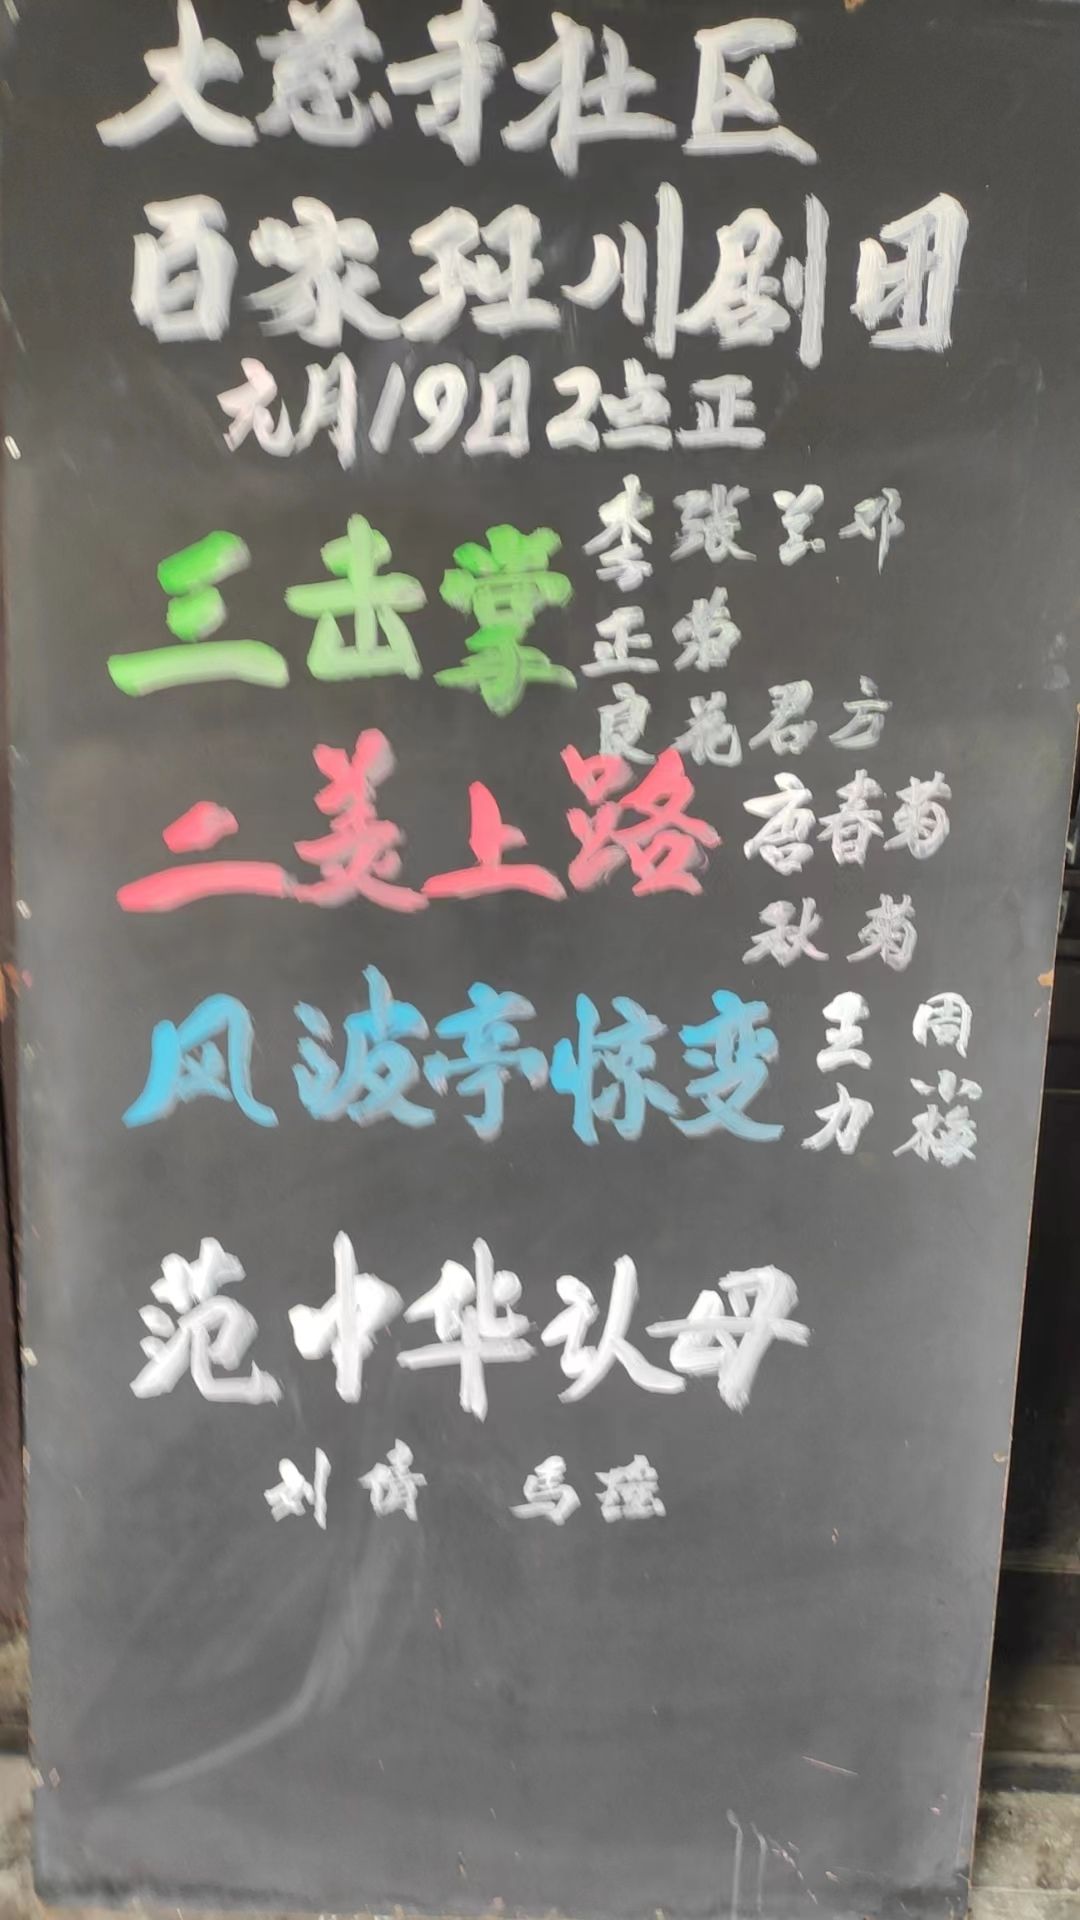 大慈寺社区
百家班川剧团
元月19日2点正
三击掌 李正良 张菊花 兰君 邓方
二美上路 唐春菊 秋菊
风波亭惊变 王力 周小梅
范中华认母
刘倩 马瑶